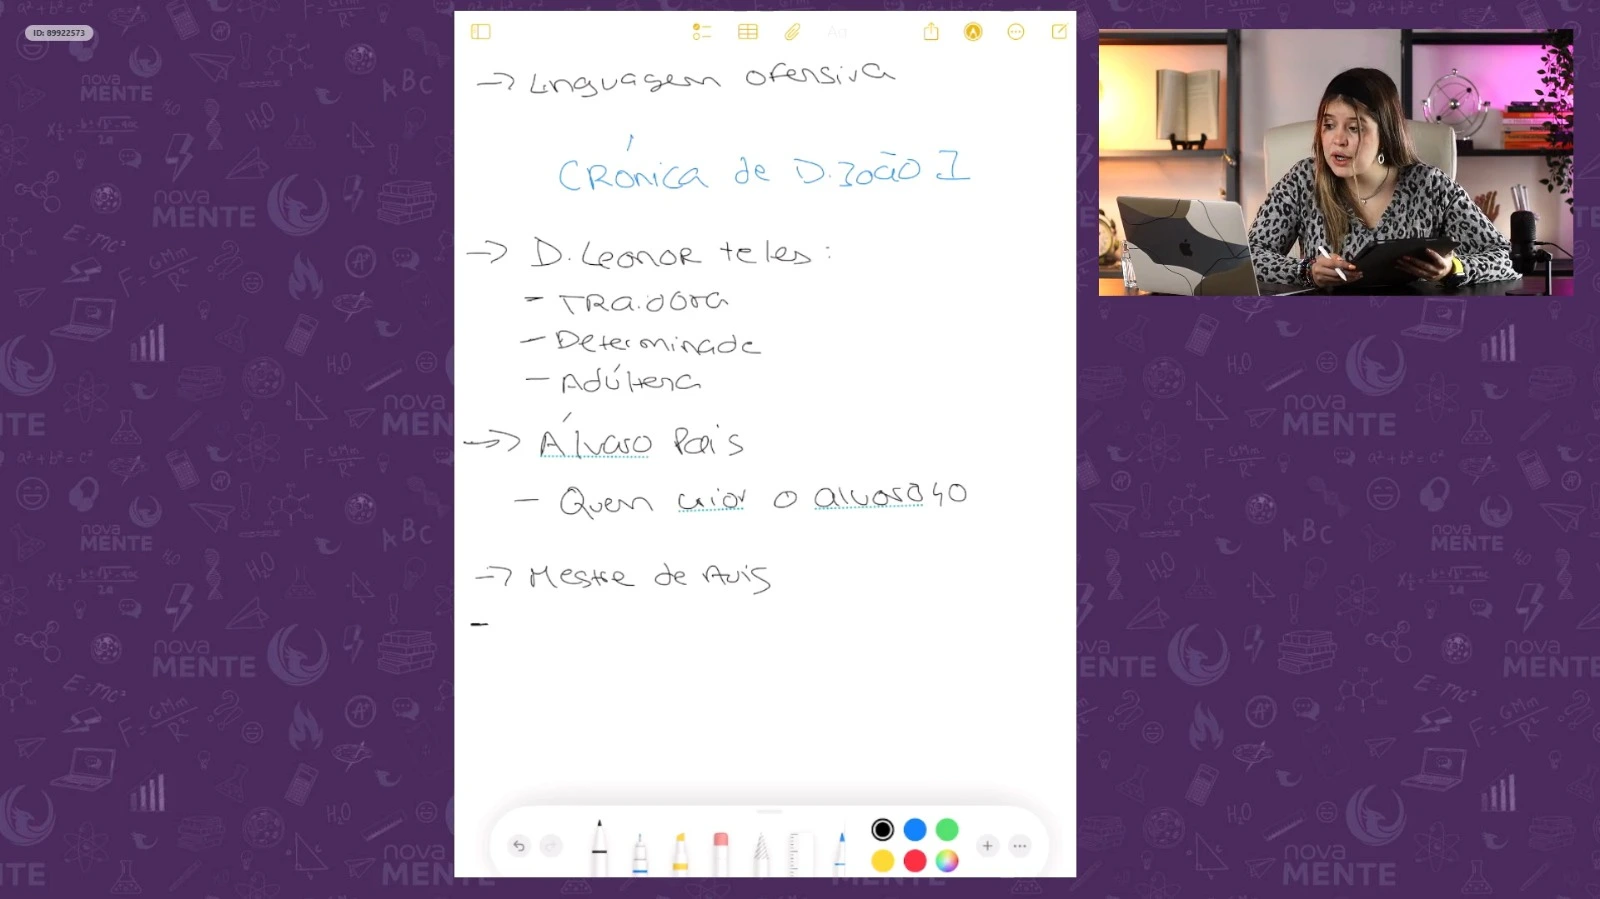 ID: 89922573
→ Linguagem ofensiva
Crónica de D. João I
→ D. Leonor teles:
- TRaidora
- Determinada
- Adúltera
→ Álvaro Pais
- Quem criar o alvoroço
→ Mestre de Avis
-
nova MENTE